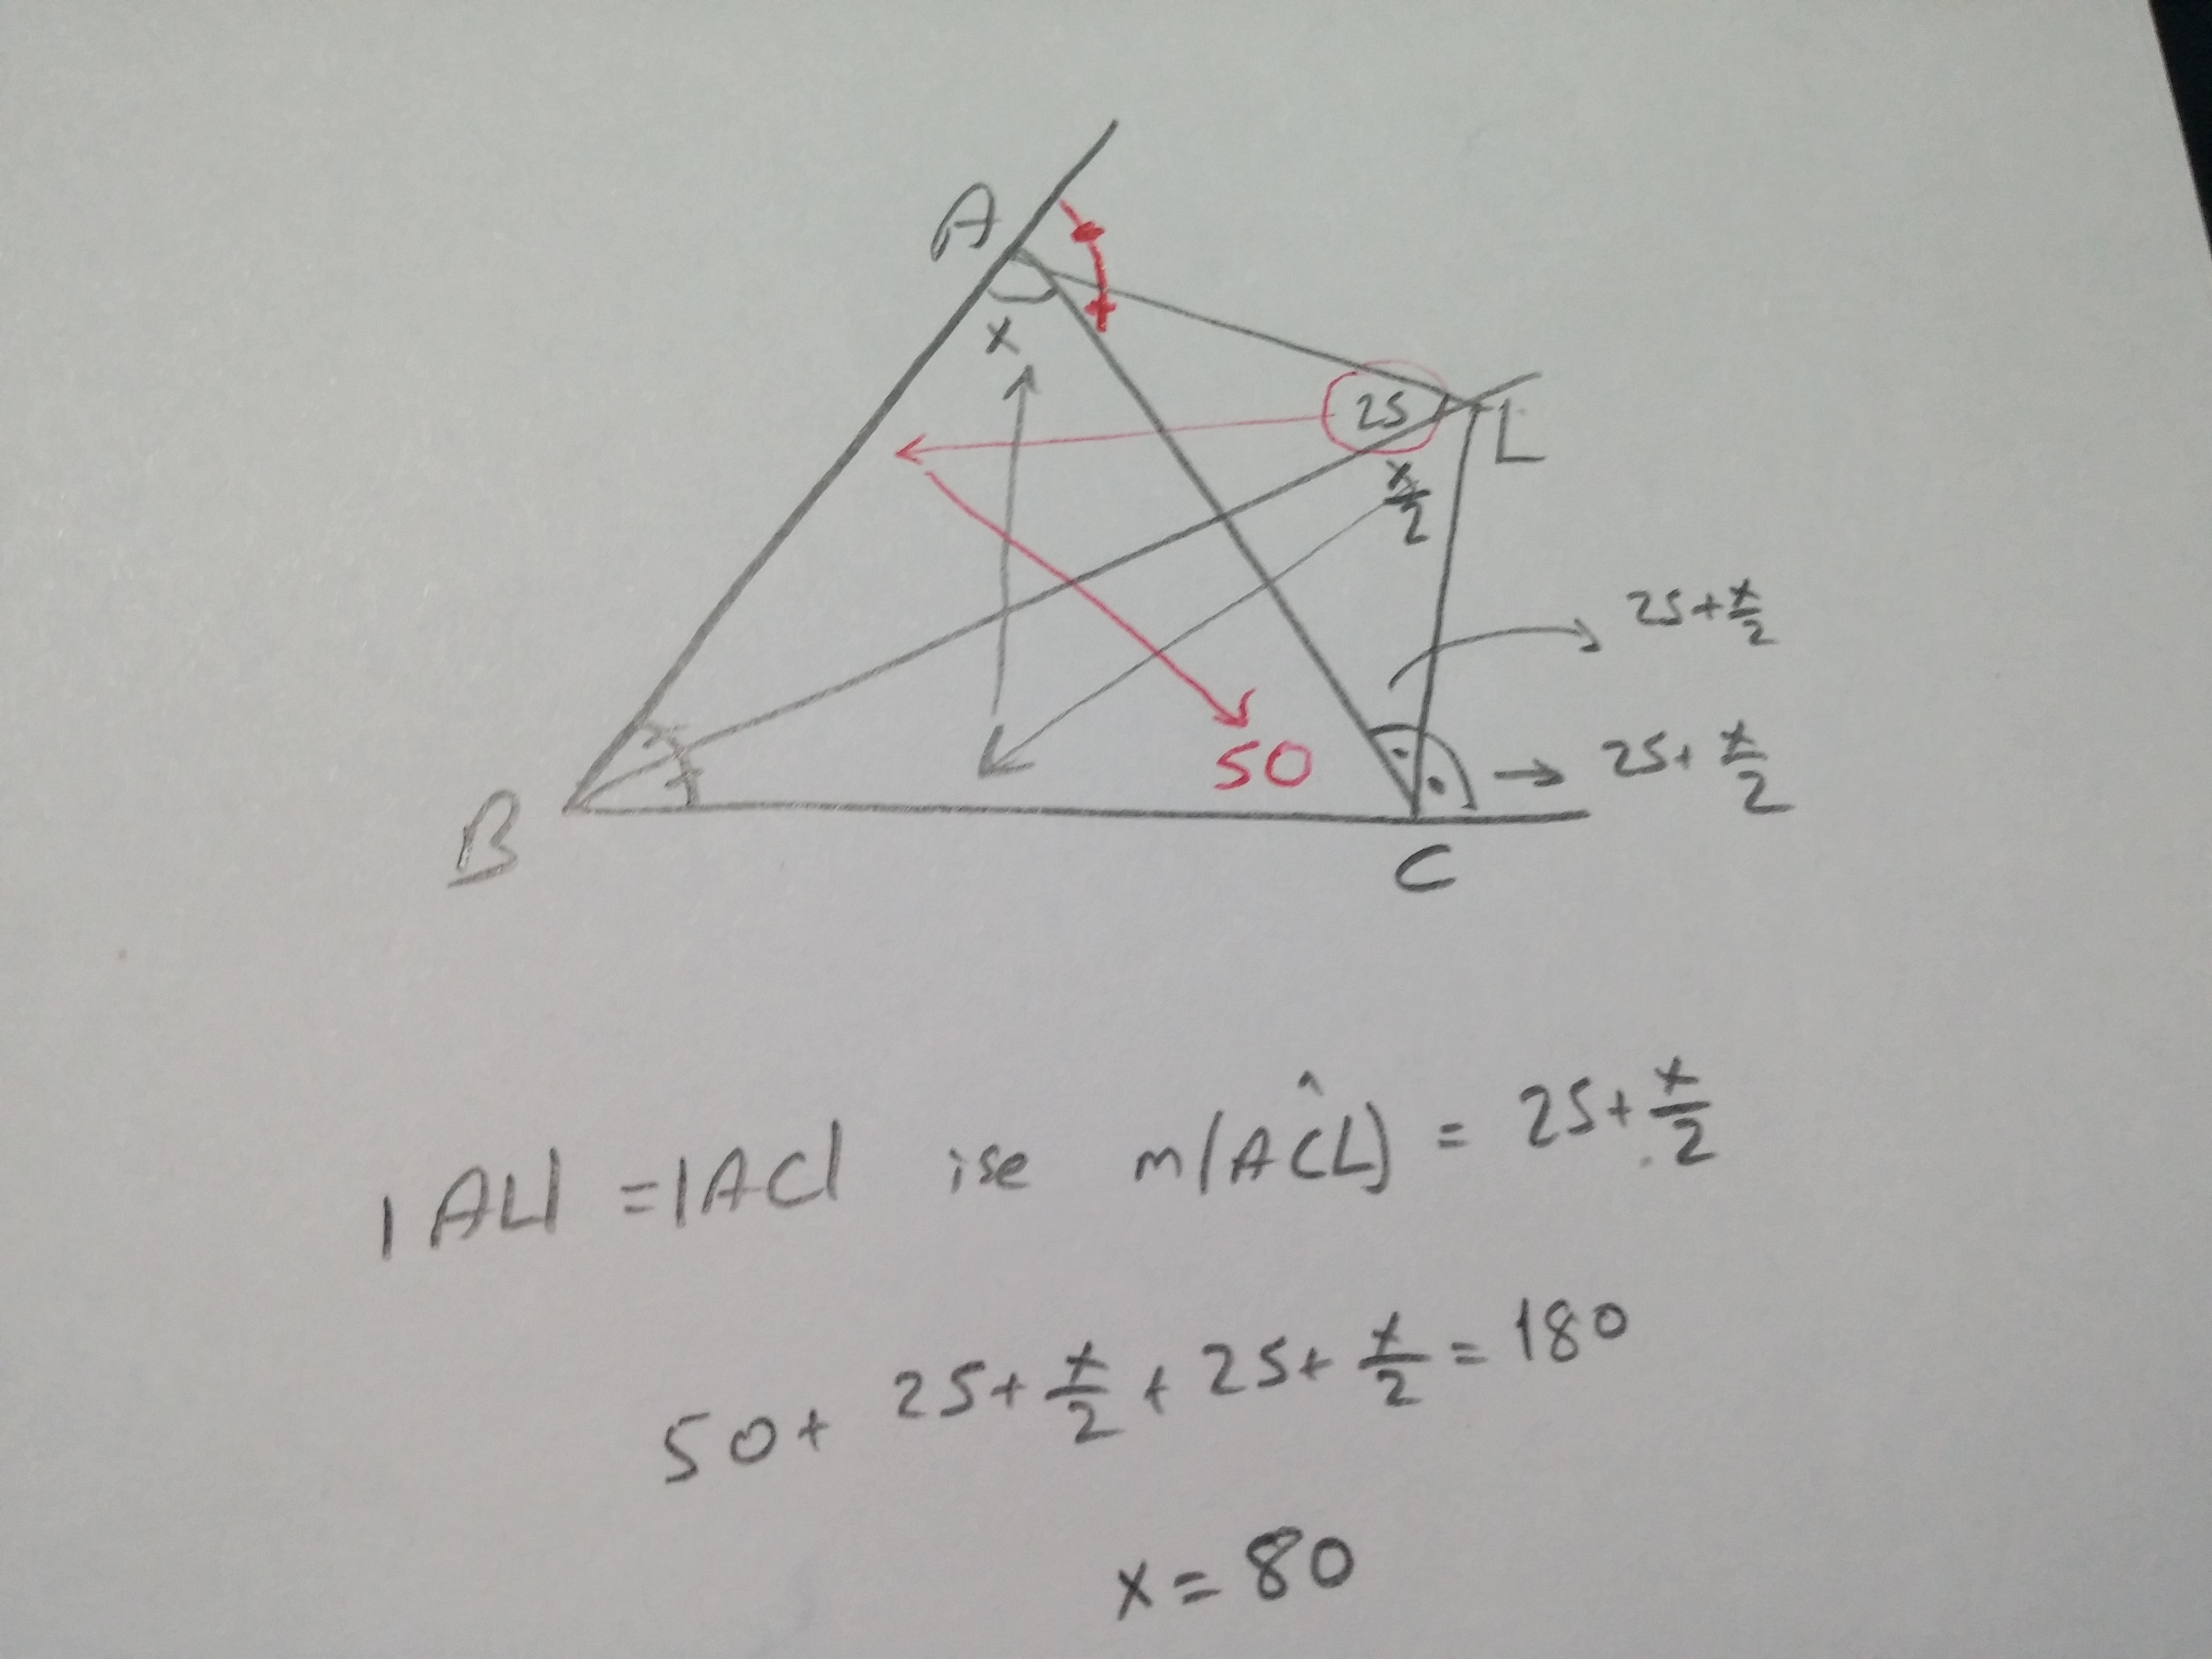 A
x
25
L
x/2
25+x/2
50
→ 25+x/2
B
C
|AL|=|AC| ise m(AĈL) = 25+x/2
50+ 25+x/2 + 25+x/2 = 180
x = 80